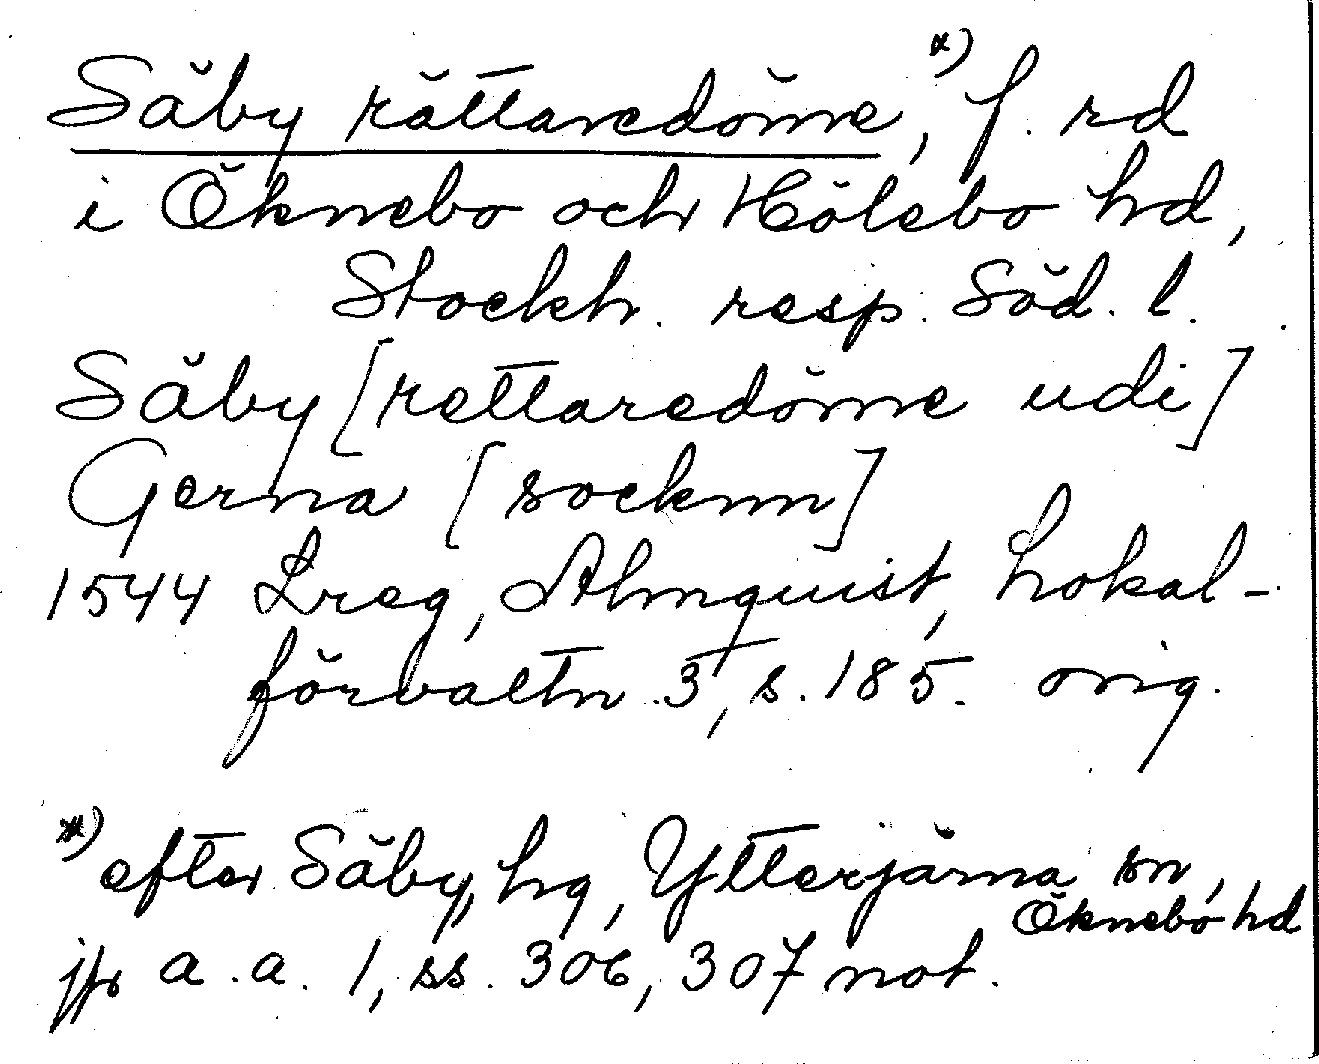 Säby rättaredöme,*) f. rd
i Öknebo och Hölebo hd,
Stockh. resp. Söd. l.
Säby [rettaredöme udi]
Gerna [socknn]
1544 Lreg, Almquist, Lokal-
förvaltn. 3, s. 185. orig.
*) efter Säby, hg, Ytterjärna sn,
Öknebo hd
jfr a.a. 1, ss. 306, 307 not.